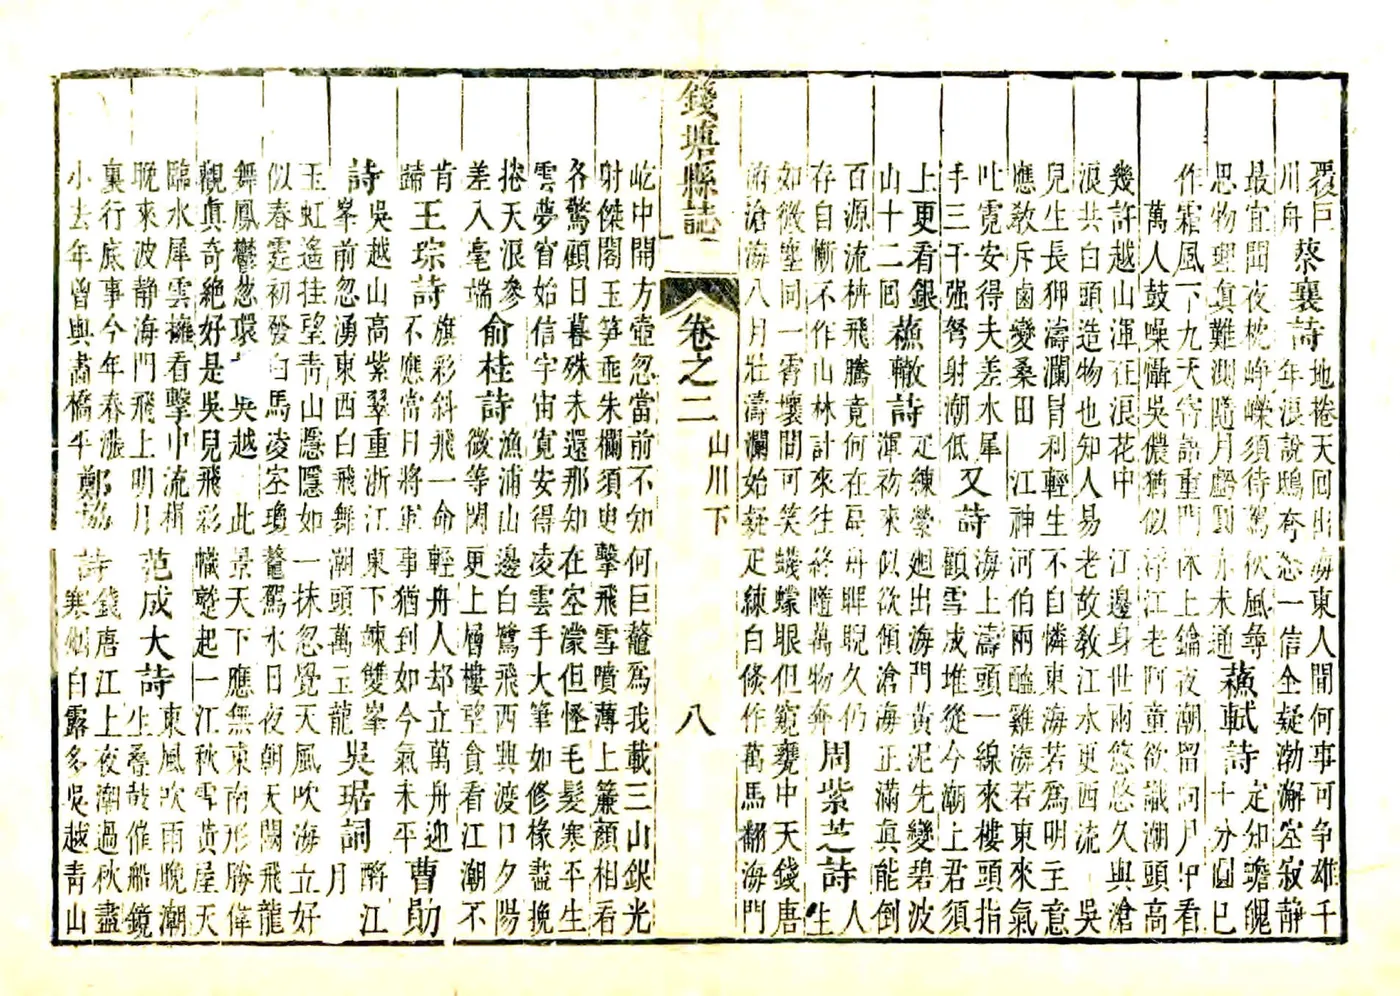 覆巨
川舟
蔡襄詩
地捲天回出海東人間何事可爭雄千
年浪說鴟夷怒一信全疑渤澥空寂靜
最宜聞夜枕崢嶸須待駕秋風尋
思物理眞難測隨月虧圓亦未通
蘇軾詩
定知蟾魄
十分圓已
作霜風下九天寄語重門休上鑰夜潮留向月中看
萬人鼓噪懾吳儂猶似浮江老阿童欲識潮頭高
幾許越山渾在浪花中 江邊身世兩悠悠久與滄
浪共白頭造物也知人易老故敎江水更西流 吳
兒生長狎濤瀾冒利輕生不自憐東海若爲明主意
應敎斥鹵變桑田 江神河伯兩醯雞海若東來氣
吐霓安得夫差水犀
手三千强弩射潮低
又詩
海上濤頭一線來樓頭指
顧雪成堆從今潮上君須
上更看銀
山十二回
蘇轍詩
疋練縈廻出海門黃泥先變碧波
渾初來似欲傾滄海正滿眞能倒
百源流枿飛騰竟何在扁舟睥睨久仍
存自慚不作山林計來往終隨萬物奔
周紫芝詩
人
生
如微塵同一霄壤間可笑蠛蠓眼但窺甕中天錢唐
俯滄海八月壯濤瀾始疑疋練白倏作萬馬翻海門
錢塘縣誌
卷之二
山川下
八
屹中開方壺忽當前不知何巨鰲爲我載三山銀光
射傑閣玉笋乖朱欄須臾擊飛雪噴薄上簾顏相看
各驚顧日暮殊未還那知在空濛但怪毛髮寒平生
雲夢胷始信宇宙寬安得凌雲手大筆如修椽盡挽
捲天浪參
差入毫端
俞桂詩
漁浦山邊白鷺飛西興渡口夕陽
微等閑更上層樓望貪看江潮不
肯
歸
王琮詩
旗彩斜飛一命輕舟人却立萬舟迎
不應當日將軍事猶到如今氣未平
曹勛
詩
吳越山高紫翠重浙江東下竦雙峯
峯前忽湧東西白飛舞潮頭萬玉龍
吳琚詞
酹江
月
玉虹遙挂望靑山隱隱如一抹忽覺天風吹海立好
似春霆初發白馬凌空瓊鰲駕水日夜朝天闕飛龍
舞鳳鬱葱環 吳越 此景天下應無東南形勝偉
觀眞奇絕好是吳兒飛彩幟蹙起一江秋雪黃屋天
臨水犀雲擁看擊中流楫
晚來波静海門飛上明月
范成大詩
東風吹雨晚潮
生疊鼓催船鏡
裏行底事今年春漲
小去年曾與畵橋平
鄭協詩
錢唐江上夜潮過秋盡
寒烟白露多吳越靑山